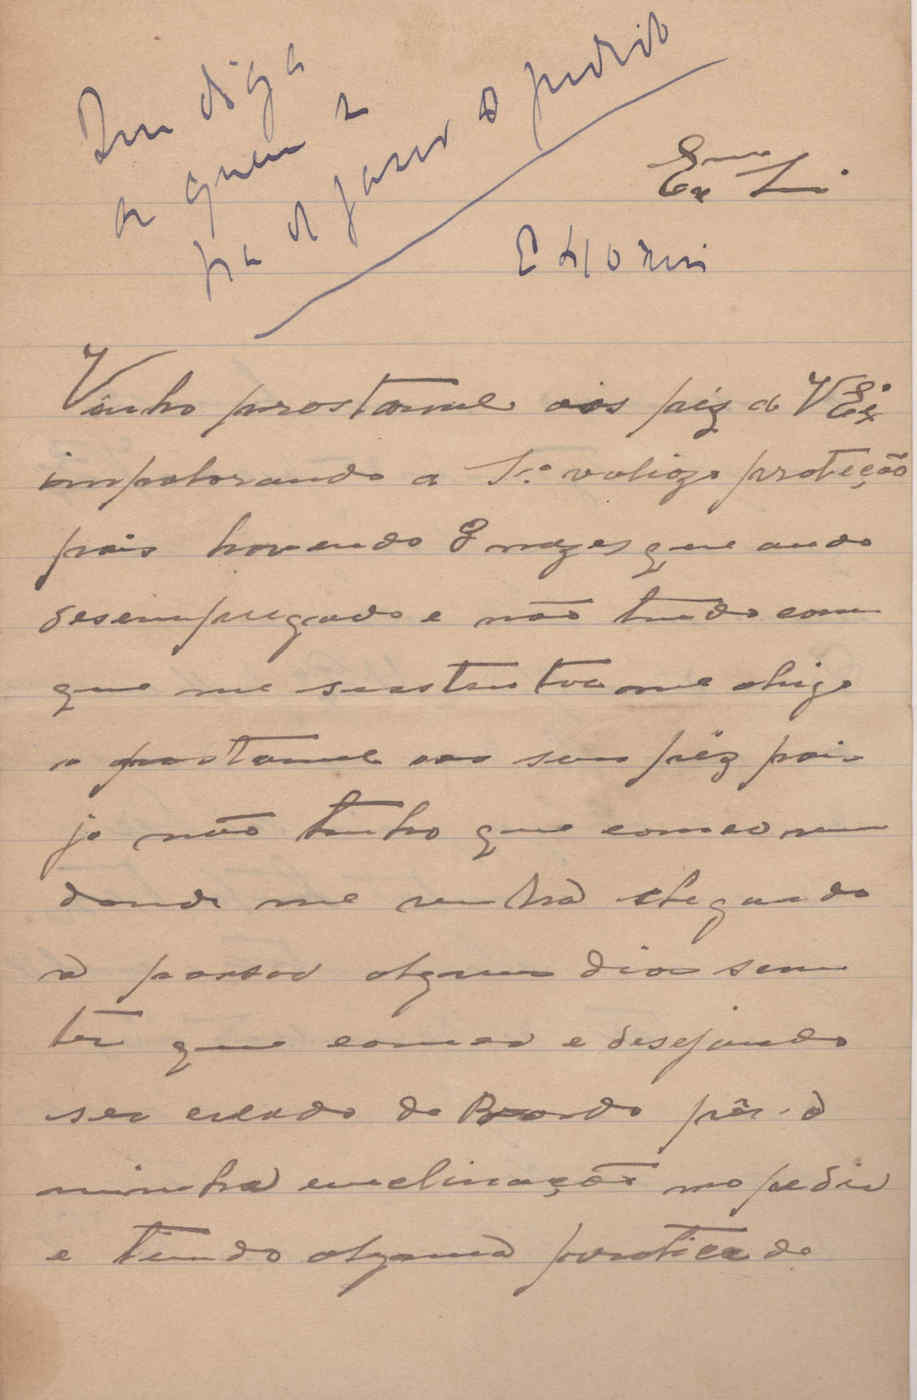 Que diga
a quem é
pra d fazer o pedido
Exmo Sr.
Vinho prostarme aos péz de V Exª
impolorando a S.ª valioza proteção
pois havendo 8 mezes que ando
desempregado e não tendo com
que me sustentar me obrigo
a prostarme aos seus péz pois
ja não tenho que comer nem
donde me venha chegando
à passar alguns dias sem
ter que comer e desejando
ser criado de Bordo pêr à
minha enclinação mo pedir
e tendo algumà pratica de